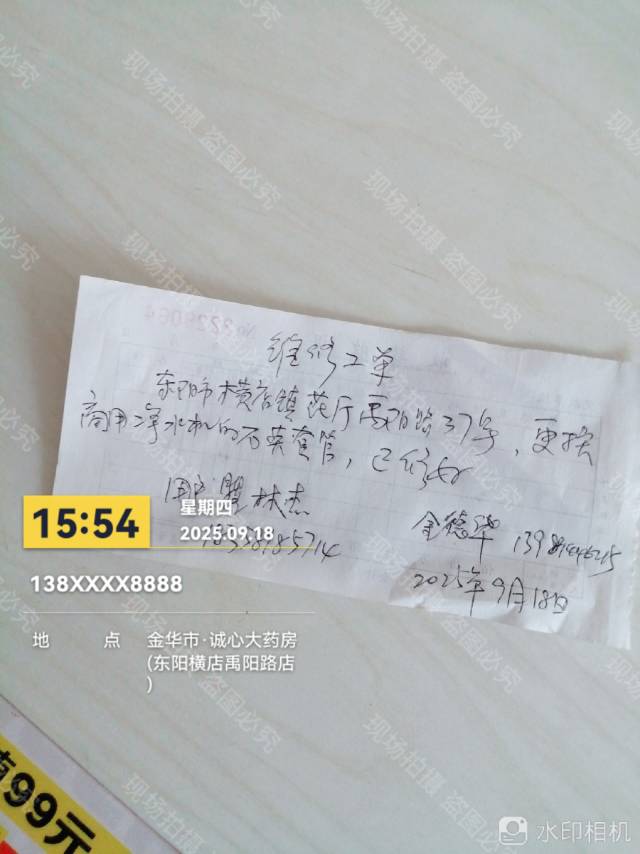 No 3229064
维修工单
东阳市横店镇花厅禹阳路37号，更换
商用净水机的石英套管，已修好
用户 林杰
金德华
2025年9月18日
15:54
星期四
2025.09.18
138XXXX8888
地 点
金华市·诚心大药房
(东阳横店禹阳路店
)
99元
水印相机
现场拍摄 盗图必究